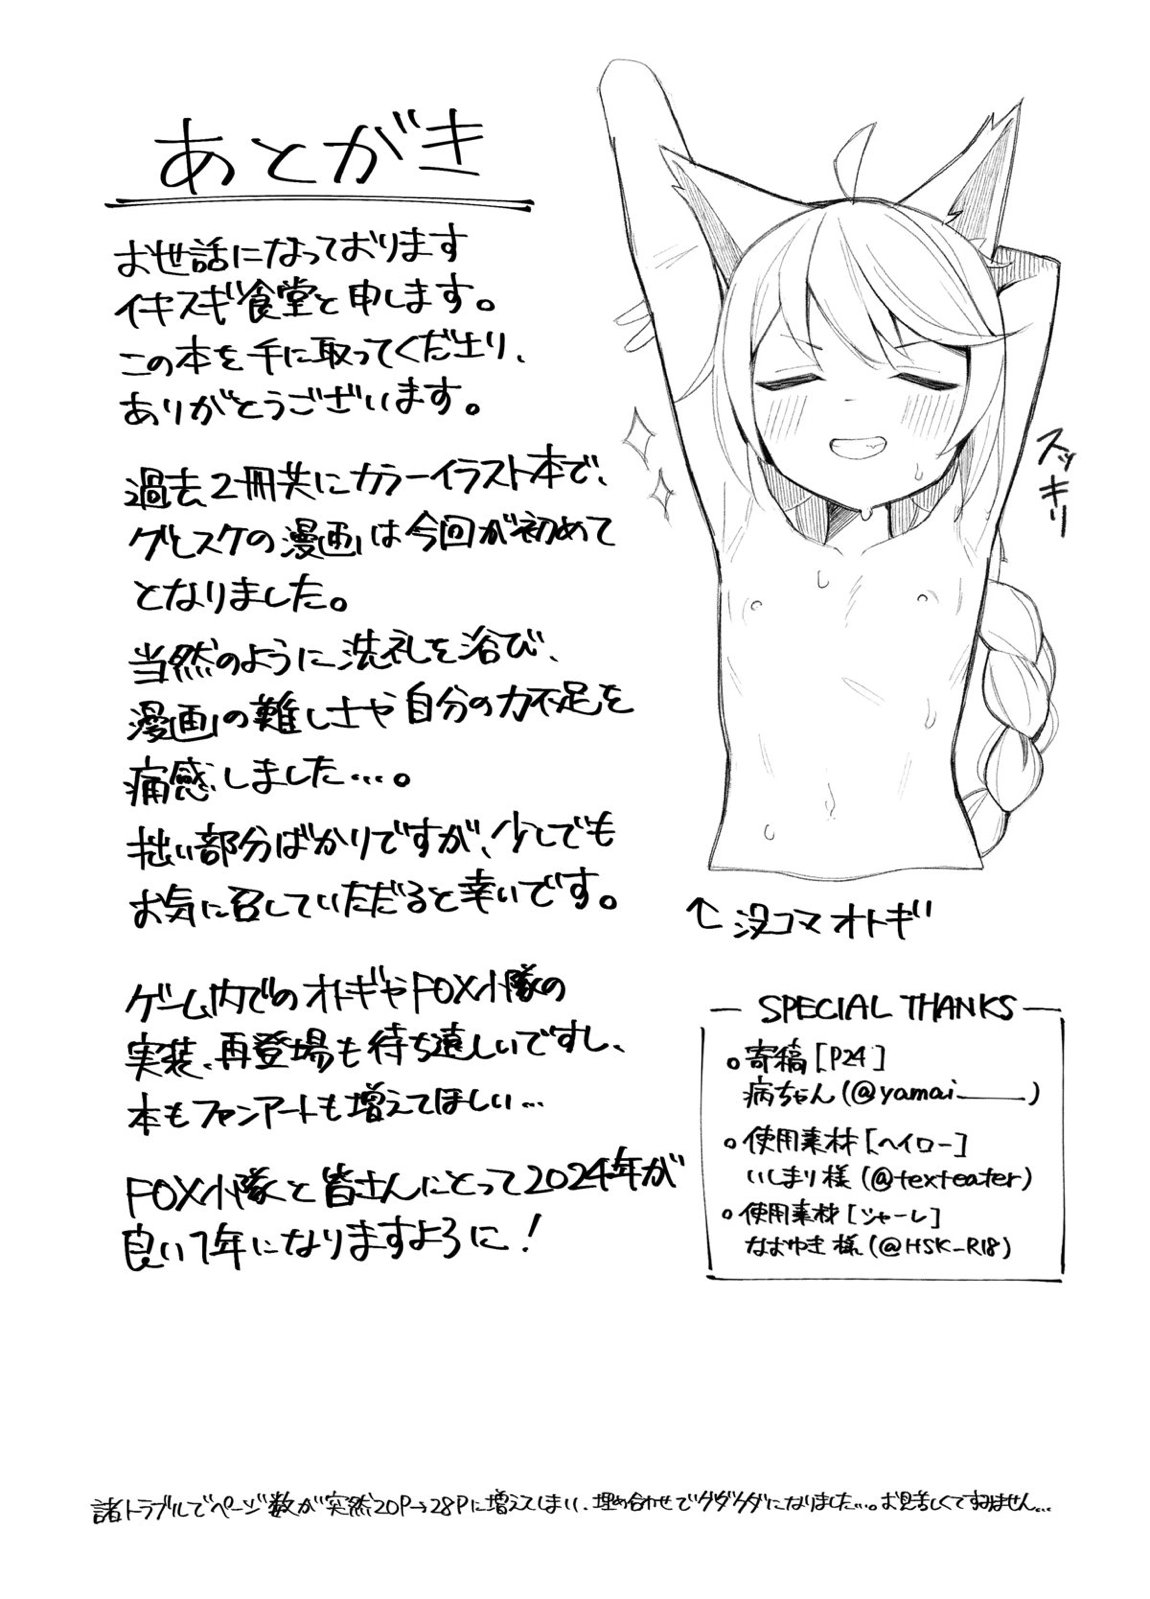 あとがき
お世話になっております
イキスギ食堂と申します。
この本を手に取ってくださり、
ありがとうございます。
過去2冊共にカラーイラスト本で、
ゲヒスケの漫画は今回が初めて
となりました。
当然のように洗礼を浴び、
漫画の難しさや自分の力不足を
痛感しました…。
拙い部分ばかりですが、少しでも
お気に召していただると幸いです。
ゲーム内でのオトギやFOX小隊の
実装、再登場も待ち遠しいですし、
本もファンアートも増えてほしい…
FOX小隊と皆さんにとって2024年が
良い1年になりますように!
スッキリ
↑没コマオトギ
SPECIAL THANKS
○寄稿[P24]
病ちゃん(@yamai____)
○使用素材[ヘイロー]
いしまり様(@texteater)
○使用素材[シャーレ]
なおゆき様(@HSK_R18)
諸トラブルでページ数が突然20P→28Pに増えてしまい、埋め合わせでグダグダになりました…。お見苦しくてすみません…